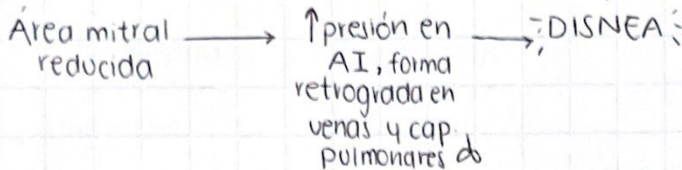 Área mitral
reducida
→
↑presión en
AI, forma
retrograda en
venas y cap.
pulmonares
→
DISNEA